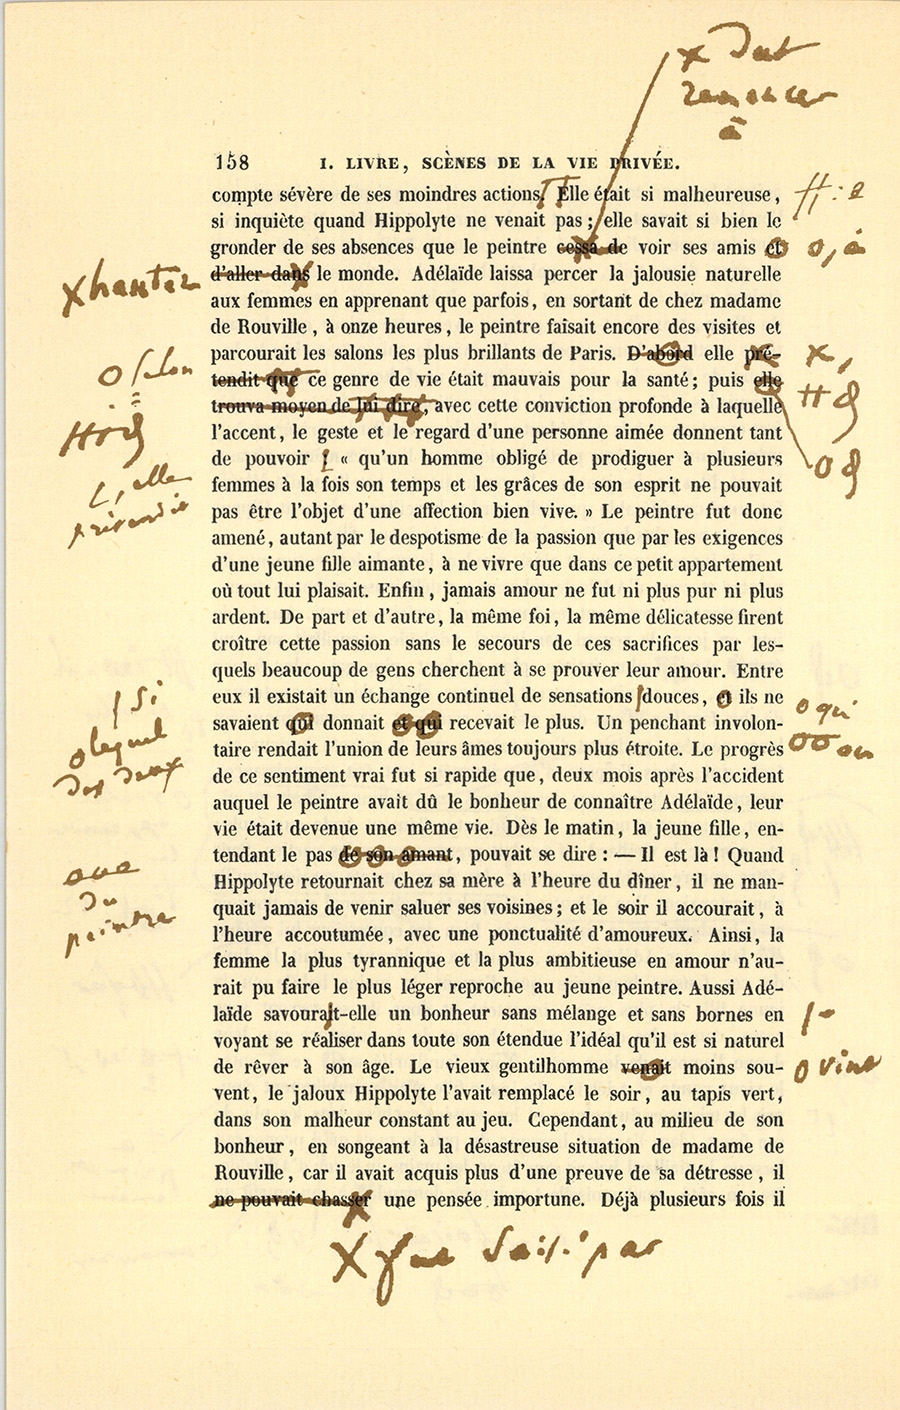 x Dut
renoncer
à
158 I. LIVRE, SCÈNES DE LA VIE PRIVÉE.
compte sévère de ses moindres actions. Elle était si malheureuse,
si inquiète quand Hippolyte ne venait pas ; elle savait si bien le
gronder de ses absences que le peintre cessa de voir ses amis et
o, à
d'aller dans le monde. Adélaïde laissa percer la jalousie naturelle
x hanter
aux femmes en apprenant que parfois, en sortant de chez madame
de Rouville, à onze heures, le peintre faisait encore des visites et
parcourait les salons les plus brillants de Paris. D'abord elle pré-
o selon
tendit que ce genre de vie était mauvais pour la santé; puis elle
trouva moyen de lui dire, avec cette conviction profonde à laquelle
l'accent, le geste et le regard d'une personne aimée donnent tant
de pouvoir : « qu'un homme obligé de prodiguer à plusieurs
, elle
prétendit
femmes à la fois son temps et les grâces de son esprit ne pouvait
pas être l'objet d'une affection bien vive. » Le peintre fut donc
amené, autant par le despotisme de la passion que par les exigences
d'une jeune fille aimante, à ne vivre que dans ce petit appartement
où tout lui plaisait. Enfin, jamais amour ne fut ni plus pur ni plus
ardent. De part et d'autre, la même foi, la même délicatesse firent
croître cette passion sans le secours de ces sacrifices par les-
quels beaucoup de gens cherchent à se prouver leur amour. Entre
eux il existait un échange continuel de sensations douces, et ils ne
/ si
o qui
savaient qui donnait et qui recevait le plus. Un penchant involon-
o lequel
des deux
ou
taire rendait l'union de leurs âmes toujours plus étroite. Le progrès
de ce sentiment vrai fut si rapide que, deux mois après l'accident
auquel le peintre avait dû le bonheur de connaître Adélaïde, leur
vie était devenue une même vie. Dès le matin, la jeune fille, en-
tendant le pas de son amant, pouvait se dire : — Il est là ! Quand
du
peintre
Hippolyte retournait chez sa mère à l'heure du dîner, il ne man-
quait jamais de venir saluer ses voisines ; et le soir il accourait, à
l'heure accoutumée, avec une ponctualité d'amoureux. Ainsi, la
femme la plus tyrannique et la plus ambitieuse en amour n'au-
rait pu faire le plus léger reproche au jeune peintre. Aussi Adé-
laïde savourait-elle un bonheur sans mélange et sans bornes en
voyant se réaliser dans toute son étendue l'idéal qu'il est si naturel
de rêver à son âge. Le vieux gentilhomme venait moins sou-
o vint
vent, le jaloux Hippolyte l'avait remplacé le soir, au tapis vert,
dans son malheur constant au jeu. Cependant, au milieu de son
bonheur, en songeant à la désastreuse situation de madame de
Rouville, car il avait acquis plus d'une preuve de sa détresse, il
ne pouvait chasser une pensée importune. Déjà plusieurs fois il
x fut saisi par